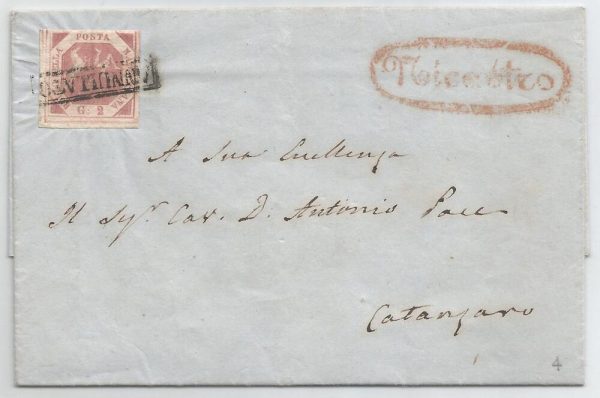 POSTA
NAPOLETANA
G. 2
ANNULLATO
Nicastro
A Sua Eccellenza
Il Sigr. Cav. D. Antonio Pace
Catanzaro
4